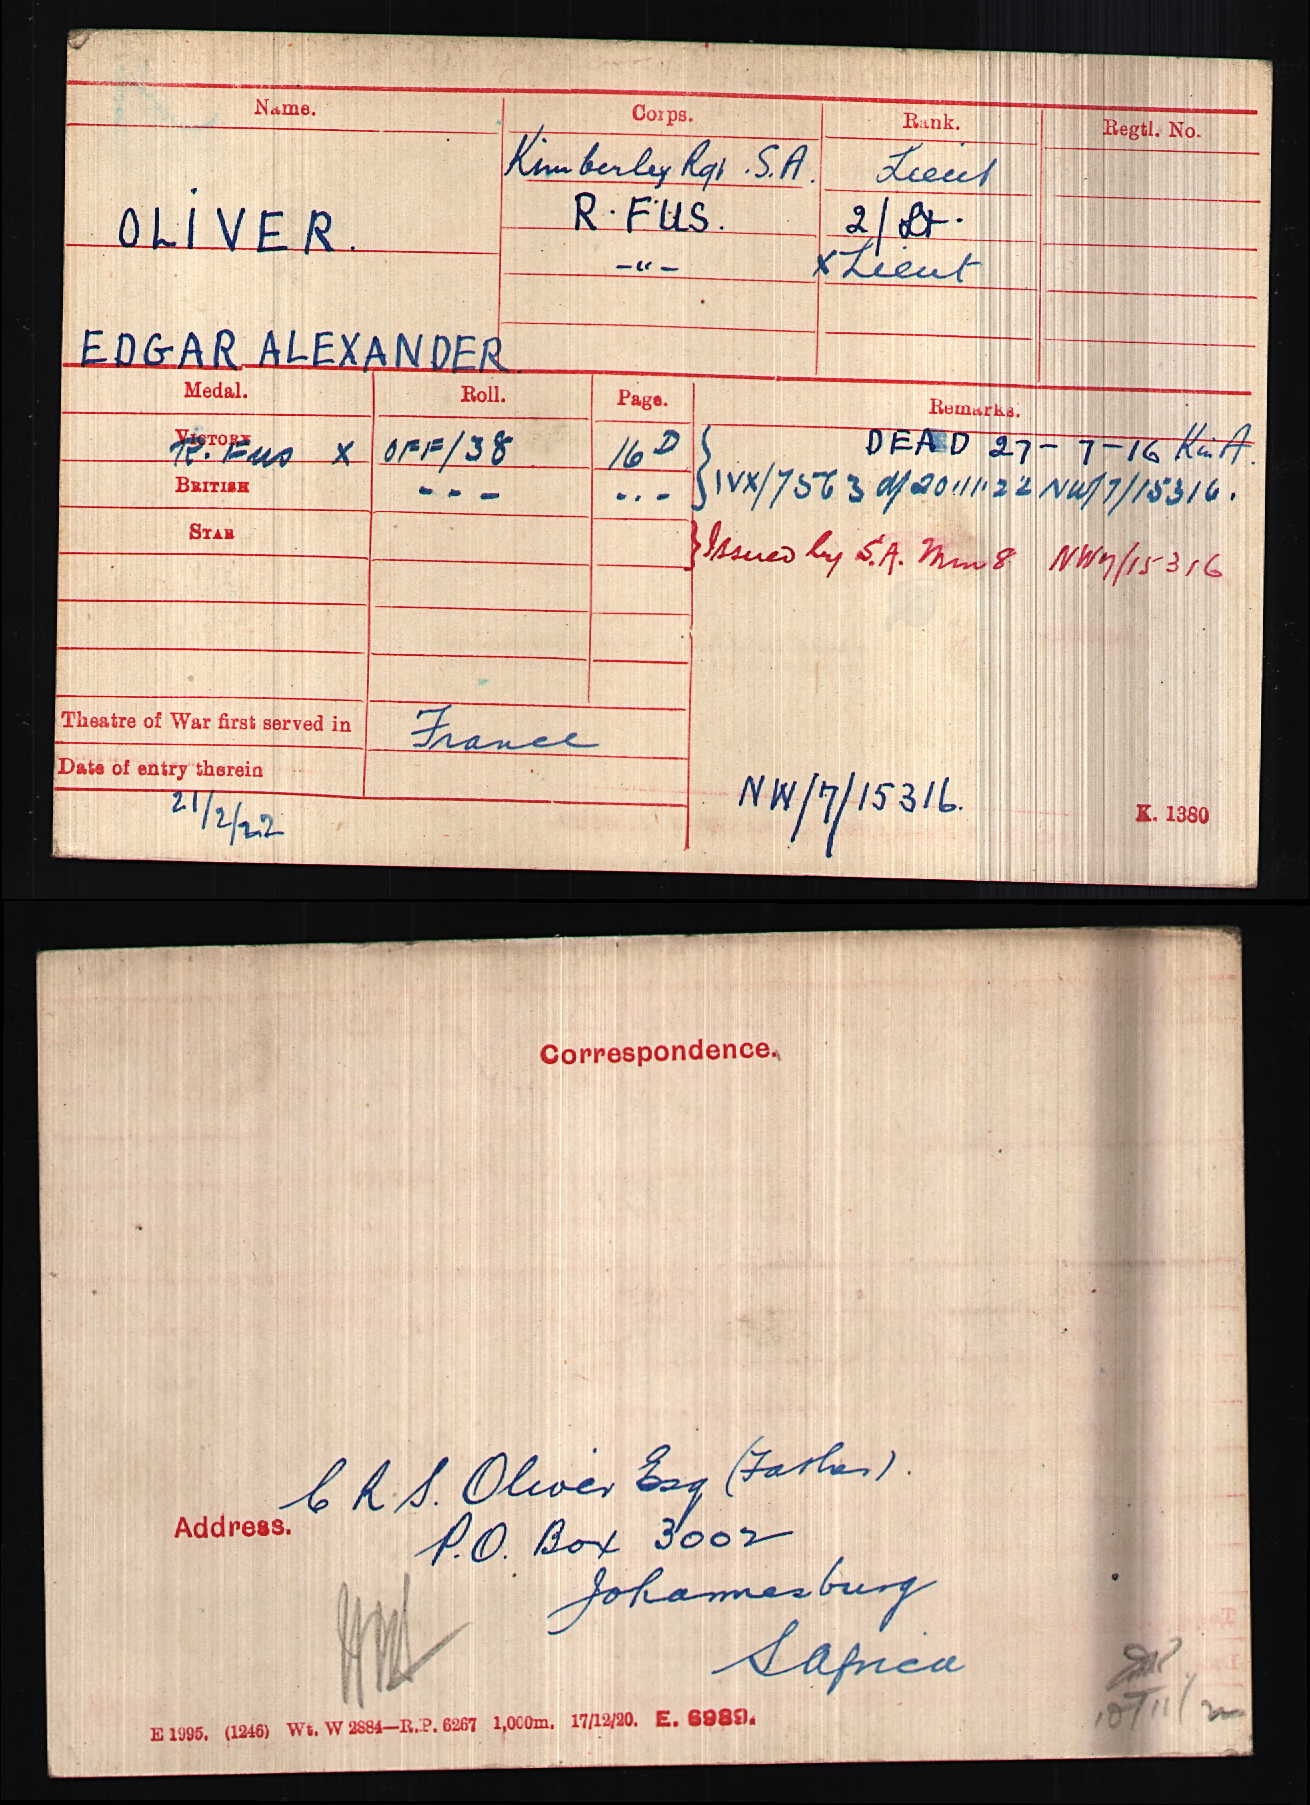 Name.
Corps.
Rank.
Regtl. No.
Kimberley Rgt. S.A. Lieut
OLIVER. R. FUS. 2/Lt.
-"- x Lieut
EDGAR ALEXANDER
Medal.
Roll.
Page.
Remarks.
VICTORY R. Fus x OFF/38 16 D DEAD 27-7-16 K in A.
BRITISH - - - - - - IVX/7563 d/20.11.22 NW/7/15316.
STAR Issued by S.A. NW7/15316
Theatre of War first served in France
Date of entry therein
21/2/22
NW/7/15316.
K. 1380
Correspondence.
C R S. Oliver Esq (Father).
Address. P.O. Box 3002
Johannesburg
S Africa
E 1995. (1246) Wt. W 2884—R.P. 6267 1,000m. 17/12/20. E. 6989.